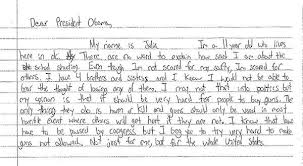 Dear President Obama,
My name is Julia. I'm a 11 year old who lives
here in dc. There are no words to explain how sad I am about the
school shooting. Even though Im not scared for my safty, Im scared for
others. I have 4 brothers and sisters and I know I would not be able to
bear the thought of losing any of them. I may not that into politics but
my opinion is that it should be very hard for people to buy guns. The only
things they do is harm or kill and guns should only be used in most
horrific event where others will get hurt if they are not. I know that laws
have to be passed by congress but I beg you to try very hard to make
guns not allowed. Not just for me, but for the whole United States.